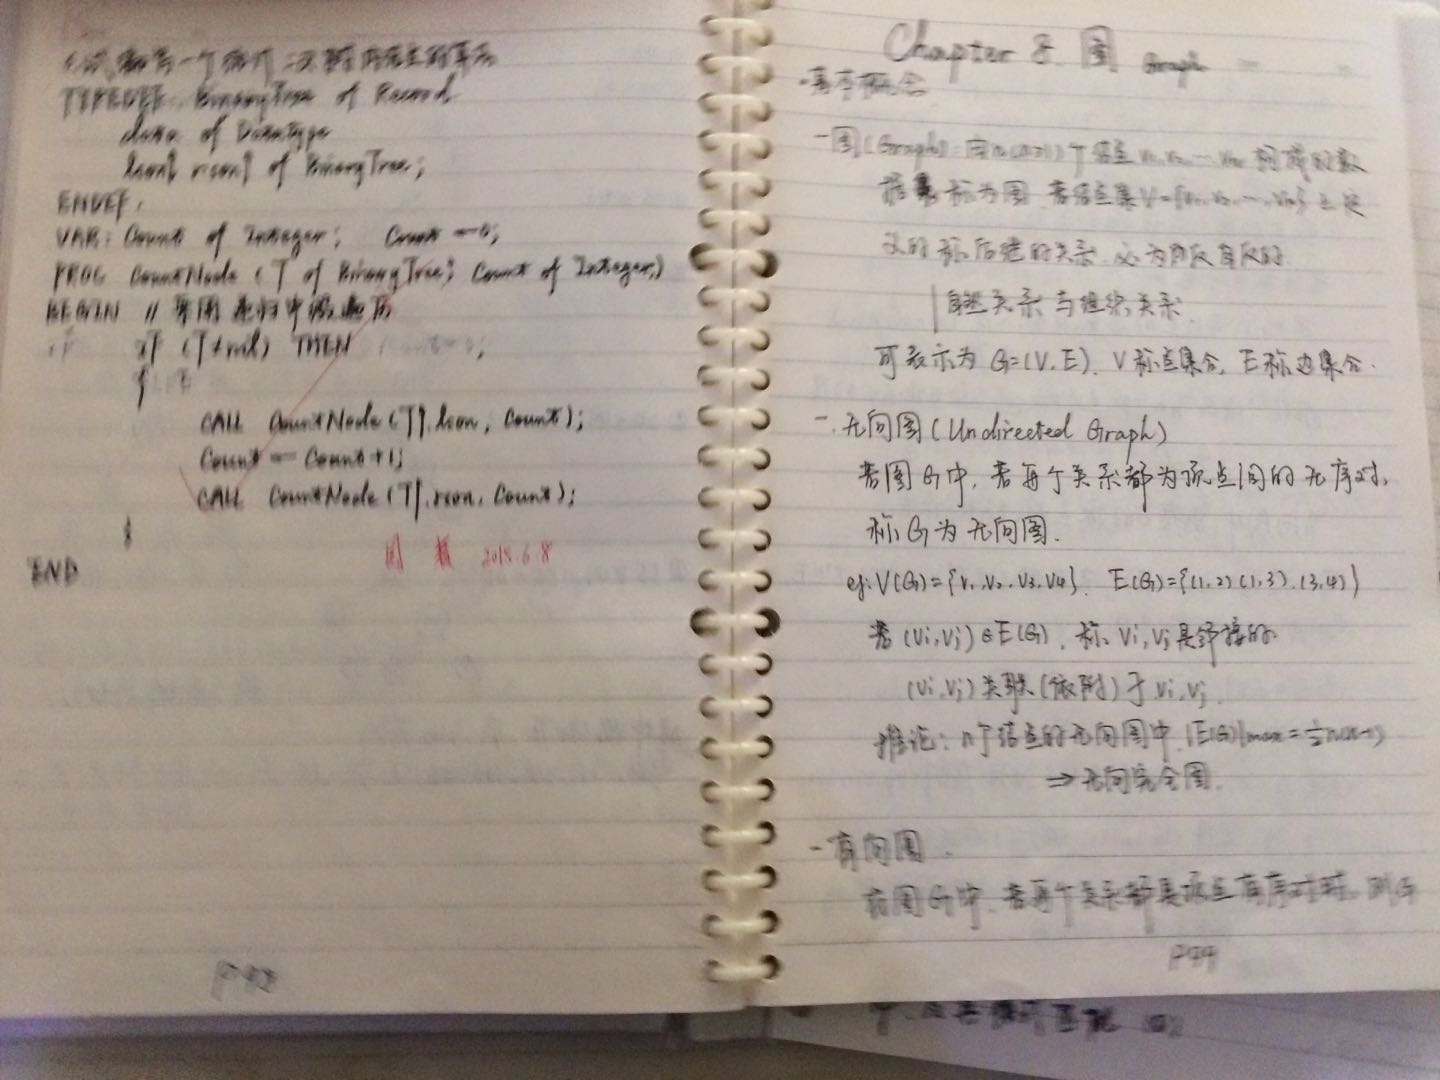 TYPEDEF: BinaryTree of Record
data of Datatype
lson↑ rson↑ of BinaryTree;
ENDEF.
VAR: Count of Integer; Count = 0;
PROG CountNode (T of BinaryTree; Count of Integer;)
BEGIN // 采用递归中根遍历
if (T≠nil) THEN
{
CALL CountNode (T↑.lson, Count);
Count = Count+1;
CALL CountNode (T↑.rson, Count);
}
END
2015.6.8
Chapter 8. 图 Graph
·基本概念
-图(Graph): 由n(n≥1)个结点v1,v2,…,vn 构成的数
据 称为图. 若结点集V={v1,v2,…,vn}上定
义的 后继的关系. 必为 反自反的.
自然关系 与组织关系.
可表示为 G=(V,E). V称点集合, E称边集合.
-. 无向图(Undirected Graph)
若图G中, 若每个关系都为顶点间的无序对,
称G为无向图.
eg: V(G)={v1,v2,v3,v4}. E(G)={(1,2)(1,3).(3,4)}
若(vi,vj)∈E(G), 称vi,vj是邻接的.
(vi,vj)关联(依附)于vi,vj.
推论: n个结点的无向图中, |E(G)|max=½n(n-1)
→无向完全图.
-有向图.
若图G中, 若每个关系都是顶点有序对时, 则G
P44